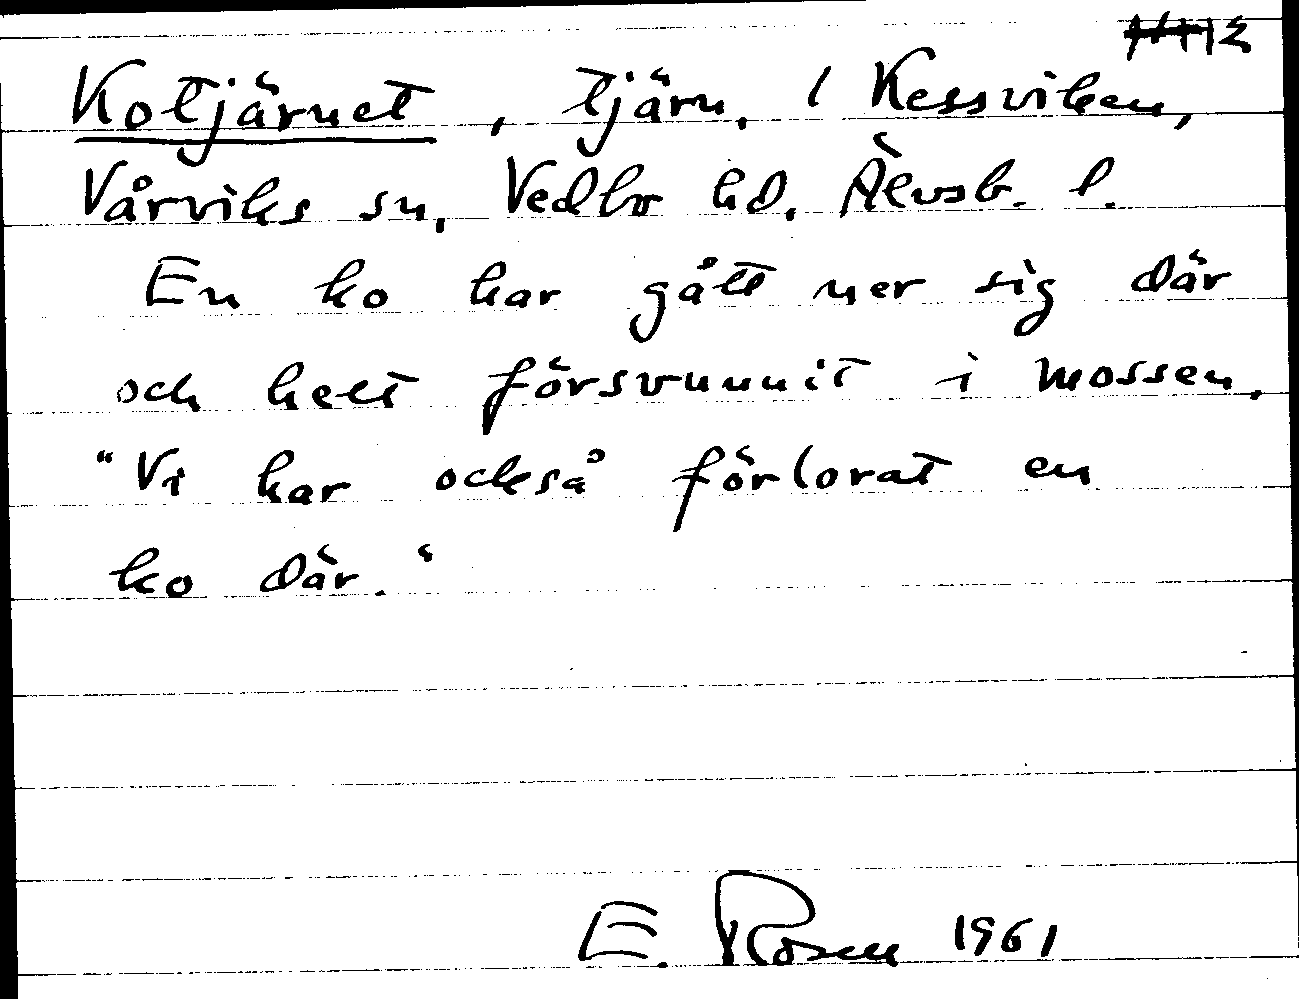 Kotjärnet, tjärn. / Kessviken,
Vårviks sn, Vedbo hd. Älvsb. l.
En ko har gått ner sig där
och helt försvunnit i mossen.
"Vi har också förlorat en
ko där."
E. Rosen 1961